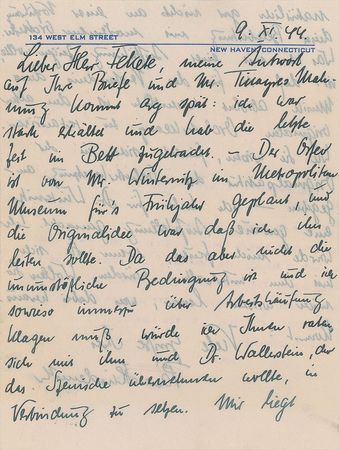 134 WEST ELM STREET
NEW HAVEN, CONNECTICUT
9. XI. 44.
Lieber Herr Fekete, meine Antwort
auf Ihre Briefe und Mr. Mah-
nung kommt arg spät: ich war
stark erkältet und hab die letzte
Zeit im Bett zugebracht. Der
ist von Mr. Winternitz im Metropolitan
Museum für's Frühjahr geplant, und
die Originalidee war daß ich ihn
leiten sollte. Da das aber nicht die
unumstößliche Bedingung ist und ich
sowieso über Arbeitshäufung
klagen muß, würde ich Ihnen raten
sich mit ihm und Dr. Wallestein, der
das Szenische übernehmen wollte, in
Verbindung zu setzen. Mir liegt